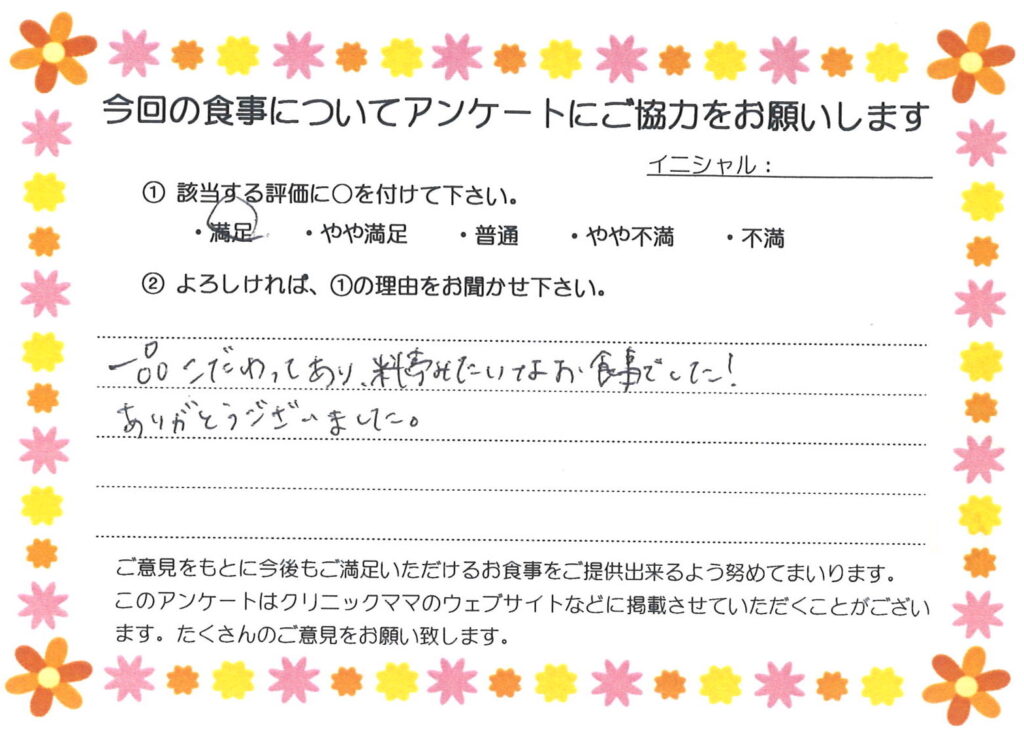 今回の食事についてアンケートにご協力をお願いします
イニシャル：
① 該当する評価に○を付けて下さい。
・満足 ・やや満足 ・普通 ・やや不満 ・不満
② よろしければ、①の理由をお聞かせ下さい。
一品こだわってあり、料亭みたいなお食事でした！
ありがとうございました。
ご意見をもとに今後もご満足いただけるお食事をご提供出来るよう努めてまいります。
このアンケートはクリニックママのウェブサイトなどに掲載させていただくことがござい
ます。たくさんのご意見をお願い致します。